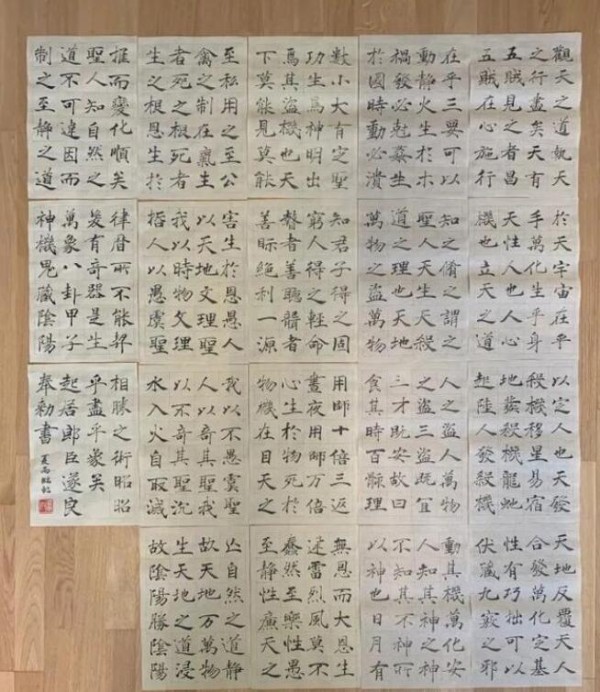 觀天之道執天
之行盡矣天有
五賊見之者昌
五賊在心施行
於天宇宙在乎
手萬化生乎身
天性人也人心
機也立天之道
以定人也天發
殺機移星易宿
地發殺機龍虵
起陸人發殺機
天地反覆天人
合發萬化定基
性有巧拙可以
伏藏九竅之邪
在乎三要可以
動靜火生於木
禍發必尅姦生
於國時動必潰
知之脩之謂之
聖人天生天殺
道之理也天地
萬物之盜萬物
人之盜人萬物
之盜三盜既宜
三才既安故曰
食其時百骸理
動其機萬化安
人知其神之神
不知其不神所
以神也日月有
數小大有定聖
功生焉神明出
焉其盜機也天
下莫能見莫能
知君子得之固
窮人得之輕命
瞽者善聽聾者
善眎絕利一源
用師十倍三返
晝夜用師万倍
心生於物死於
物機在目天之
無恩而大恩生
迅雷烈風莫不
蠢然至樂性愚
至靜性廉天之
至私用之至公
禽之制在氣生
者死之根死者
生之根恩生於
害生於恩愚人
以天地文理聖
我以時物文理
哲人以愚虞聖
我以不愚虞聖
人以奇其聖我
以不奇其聖沉
水入火自取滅
亡自然之道靜
故天地万物
生天地之道浸
故陰陽勝陰陽
推而變化順矣
聖人知自然之
道不可違因而
制之至靜之道
律曆所不能契
爰有奇器是生
萬象八卦甲子
神機鬼藏陰陽
相勝之術昭昭
乎盡乎象矣
起居郎臣遂良
奉勑書